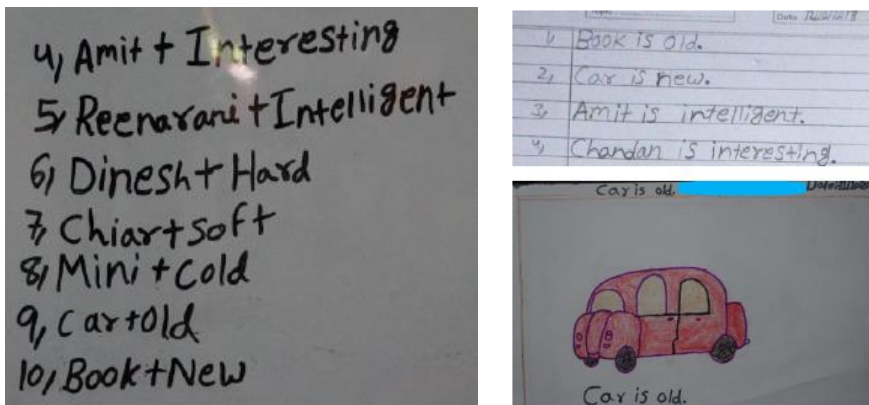 4, Amit + Interesting
5, Reenarani + Intelligent
6, Dinesh + Hard
7, Chiar + Soft
8, Mini + Cold
9, Car + Old
10, Book + New
Date
1, Book is old.
2, Car is new.
3, Amit is intelligent.
4, Chandan is interesting.
Car is old.
Date
Car is old.